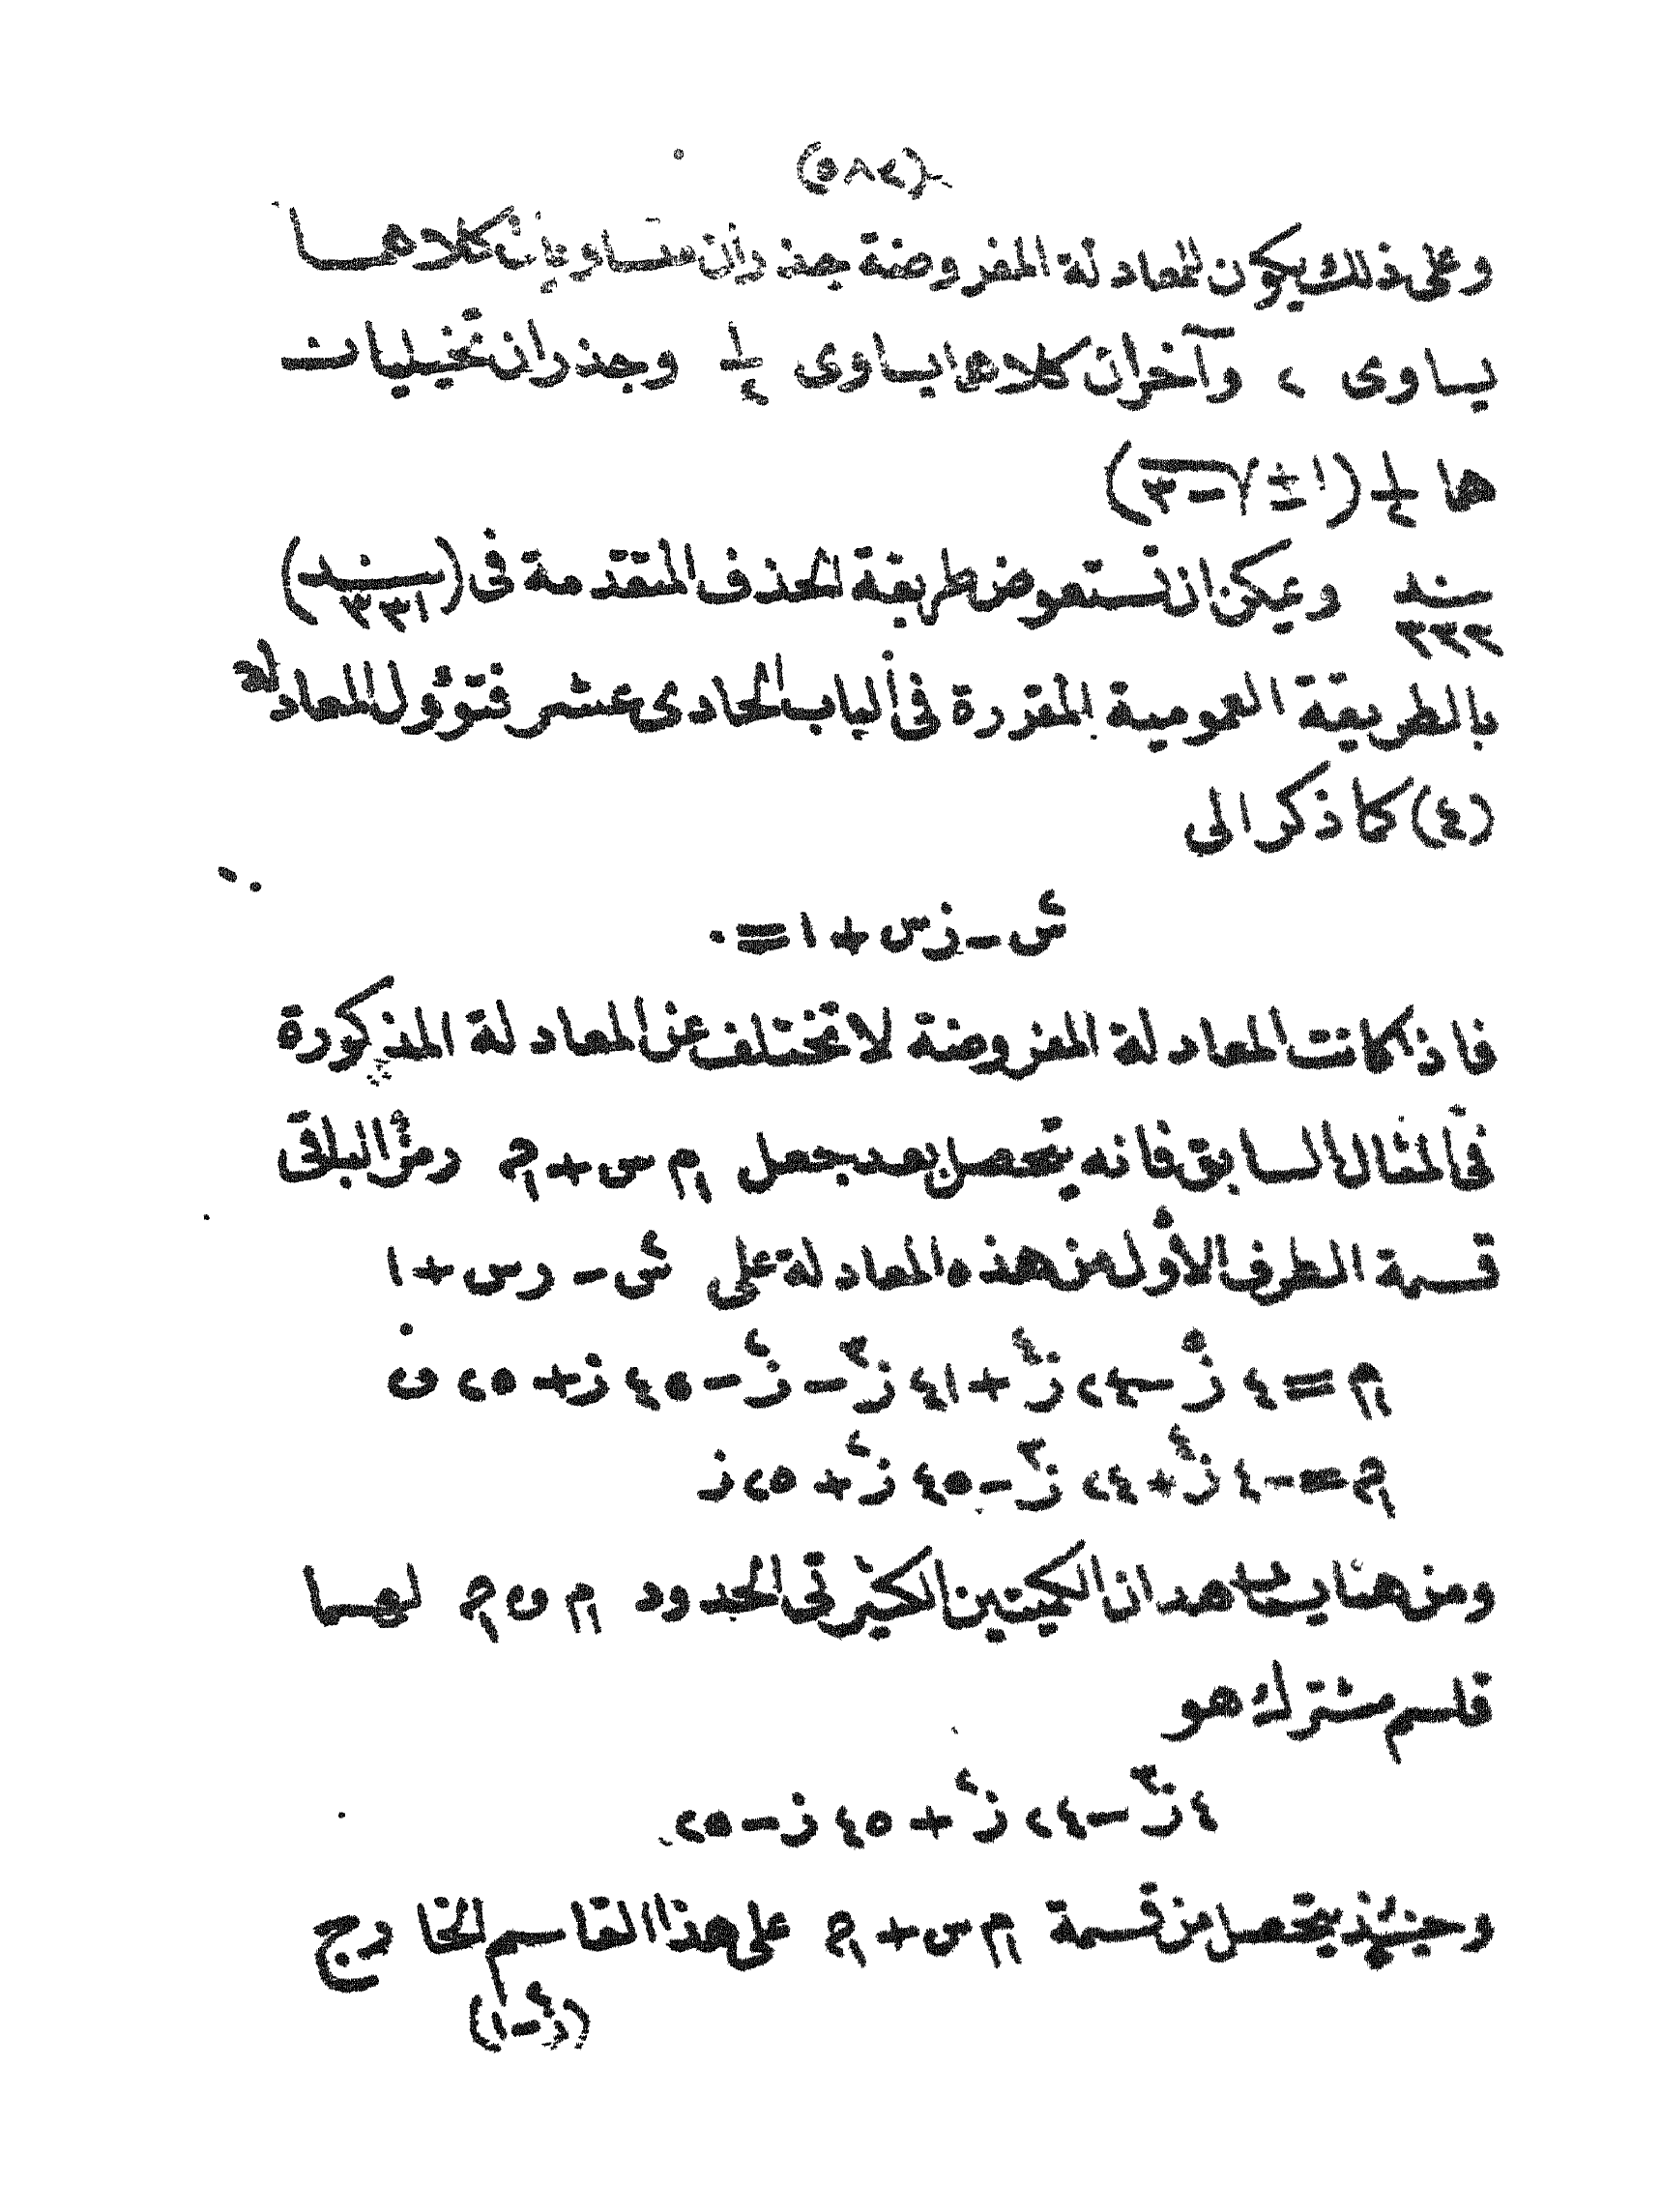 (٥٨٢)
وعلى ذلك يكون للمعادلة المفروضة جذران متساويان كلاهما
يساوى ٢ وآخران كلاهما يساوى ١/٢ وجذران تخيليان
هما ١/٢ (١ ± √-٣)
بند ٣٣٢ ويمكن ان نستعوض طريقة الحذف المتقدمة فى (بند ٣٣١)
بالطريقة العمومية المقررة فى الباب الحادى عشر فتؤول المعادلة
(٤) كما ذكر الى
س٢ - ز س + ١ = ٠
فاذا كانت المعادلة المفروضة لا تختلف عن المعادلة المذكورة
فى المثال السابق فانه يتحصل بعد جعل م١ س + ح١ رمزا لباقى
قسمة الطرف الأول من هذه المعادلة على س٢ - ز س + ١
م١ = ٤ ز٥ - ٢٤ ز٤ + ٤١ ز٣ - ز٢ - ٤٥ ز + ٢٥ و
ح١ = - ٤ ز٤ + ٢٤ ز٣ - ٤٥ ز٢ + ٢٥ ز
ومن هنا يشاهد ان الكميتين الكثيرتى الحدود م١ و ح١ لهما
قاسم مشترك هو
٤ ز٣ - ٢٤ ز٢ + ٤٥ ز - ٢٥
وحينئذ يتحصل من قسمة م١ س + ح١ على هذا القاسم الخارج
(ز٢ - ١)